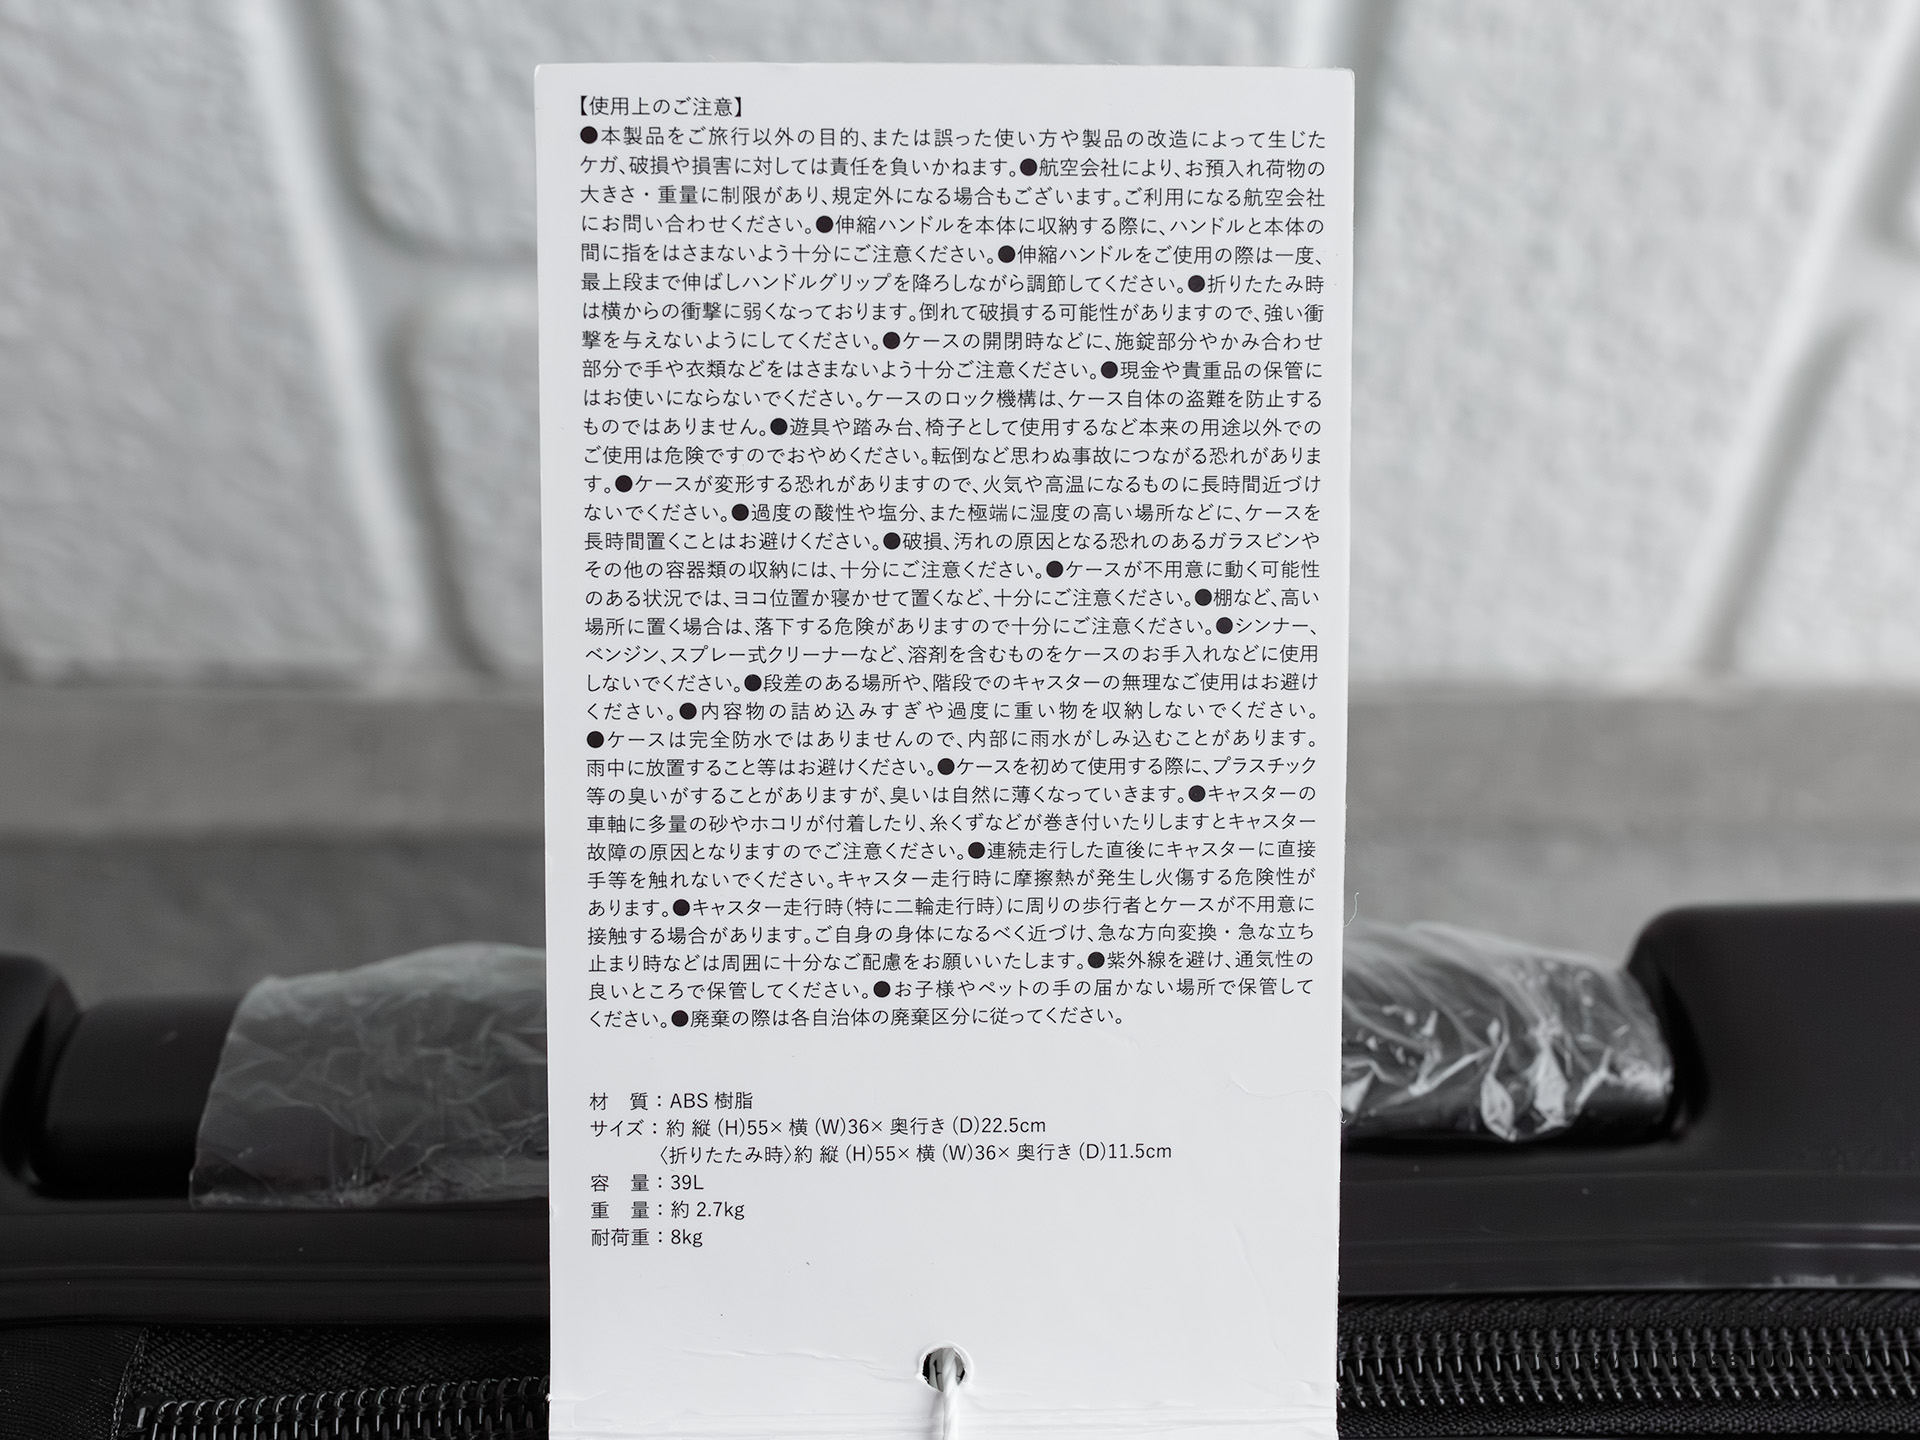 【使用上のご注意】
●本製品をご旅行以外の目的、または誤った使い方や製品の改造によって生じた
ケガ、破損や損害に対しては責任を負いかねます。●航空会社により、お預入れ荷物の
大きさ・重量に制限があり、規定外になる場合もございます。ご利用になる航空会社
にお問い合わせください。●伸縮ハンドルを本体に収納する際に、ハンドルと本体の
間に指をはさまないよう十分にご注意ください。●伸縮ハンドルをご使用の際は一度、
最上段まで伸ばしハンドルグリップを降ろしながら調節してください。●折りたたみ時
は横からの衝撃に弱くなっております。倒れて破損する可能性がありますので、強い衝
撃を与えないようにしてください。●ケースの開閉時などに、施錠部分やかみ合わせ
部分で手や衣類などをはさまないよう十分ご注意ください。●現金や貴重品の保管に
はお使いにならないでください。ケースのロック機構は、ケース自体の盗難を防止する
ものではありません。●遊具や踏み台、椅子として使用するなど本来の用途以外での
ご使用は危険ですのでおやめください。転倒など思わぬ事故につながる恐れがありま
す。●ケースが変形する恐れがありますので、火気や高温になるものに長時間近づけ
ないでください。●過度の酸性や塩分、また極端に湿度の高い場所などに、ケースを
長時間置くことはお避けください。●破損、汚れの原因となる恐れのあるガラスビンや
その他の容器類の収納には、十分にご注意ください。●ケースが不用意に動く可能性
のある状況では、ヨコ位置か寝かせて置くなど、十分にご注意ください。●棚など、高い
場所に置く場合は、落下する危険がありますので十分にご注意ください。●シンナー、
ベンジン、スプレー式クリーナーなど、溶剤を含むものをケースのお手入れなどに使用
しないでください。●段差のある場所や、階段でのキャスターの無理なご使用はお避け
ください。●内容物の詰め込みすぎや過度に重い物を収納しないでください。
●ケースは完全防水ではありませんので、内部に雨水がしみ込むことがあります。
雨中に放置すること等はお避けください。●ケースを初めて使用する際に、プラスチック
等の臭いがすることがありますが、臭いは自然に薄くなっていきます。●キャスターの
車軸に多量の砂やホコリが付着したり、糸くずなどが巻き付いたりしますとキャスター
故障の原因となりますのでご注意ください。●連続走行した直後にキャスターに直接
手等を触れないでください。キャスター走行時に摩擦熱が発生し火傷する危険性が
あります。●キャスター走行時（特に二輪走行時）に周りの歩行者とケースが不用意に
接触する場合があります。ご自身の身体になるべく近づけ、急な方向変換・急な立ち
止まり時などは周囲に十分なご配慮をお願いいたします。●紫外線を避け、通気性の
良いところで保管してください。●お子様やペットの手の届かない場所で保管して
ください。●廃棄の際は各自治体の廃棄区分に従ってください。
材　質：ABS 樹脂
サイズ：約 縦 (H)55× 横 (W)36× 奥行き (D)22.5cm
〈折りたたみ時〉約 縦 (H)55× 横 (W)36× 奥行き (D)11.5cm
容　量：39L
重　量：約 2.7kg
耐荷重：8kg